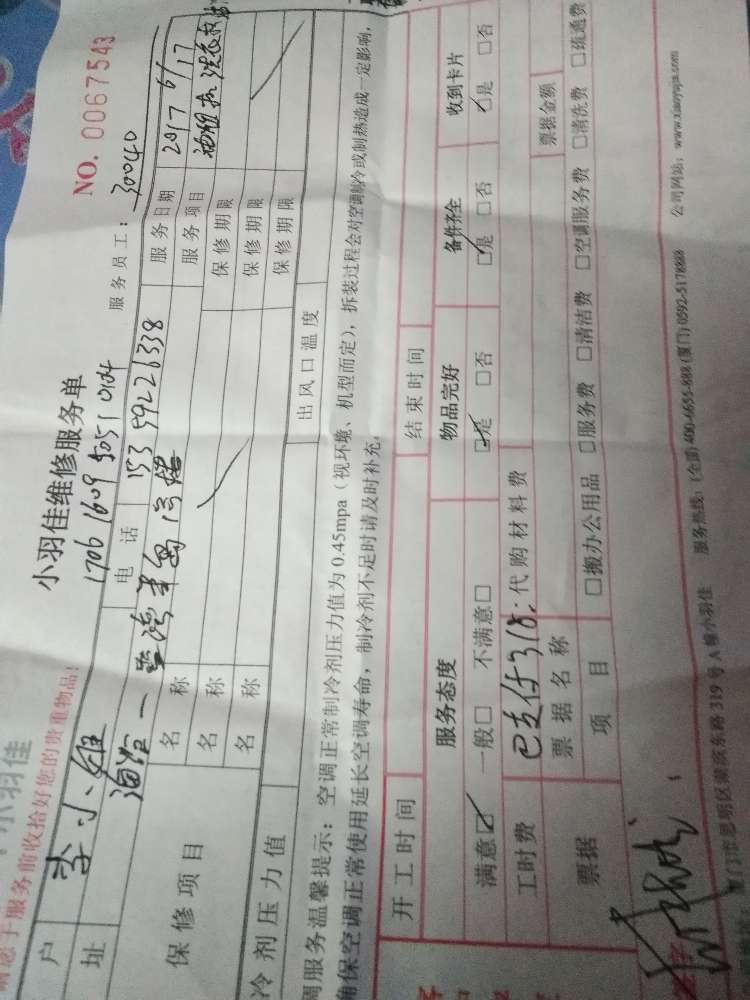 小羽佳
请您于服务前收拾好您的贵重物品!
NO. 0067543
小羽佳维修服务单
1706 1609 5051 0104
服务员工: 30040
户 李小姐 电话 153 59226338 服务日期 2017 6/17
址 海沧一 湾半岛 服务项目 油烟机 洗衣机
保修项目
名称 保修期限
名称 保修期限
名称 保修期限
冷剂压力值 出风口温度
调服务温馨提示: 空调正常制冷剂压力值为 0.45mpa (视环境、机型而定), 拆装过程会对空调制冷或制热造成一定影响,
确保空调正常使用延长空调寿命, 制冷剂不足时请及时补充。
开工时间 结束时间
服务态度 物品完好 备件齐全 收到卡片
满意☑ 一般□ 不满意□ ☑是 □否 ☑是 □否 ☑是 □否
工时费 已支付318. 代购材料费
票据 票据名称 票据金额
项目 □搬办公用品 □服务费 □清洁费 □空调服务费 □清洗费 □疏通费
厦门市思明区湖滨东路 319 号 A 幢小羽佳 服务热线: (全国) 400-4655-888 (厦门) 0592-5178888 公司网站: www.xiaoyujia.com